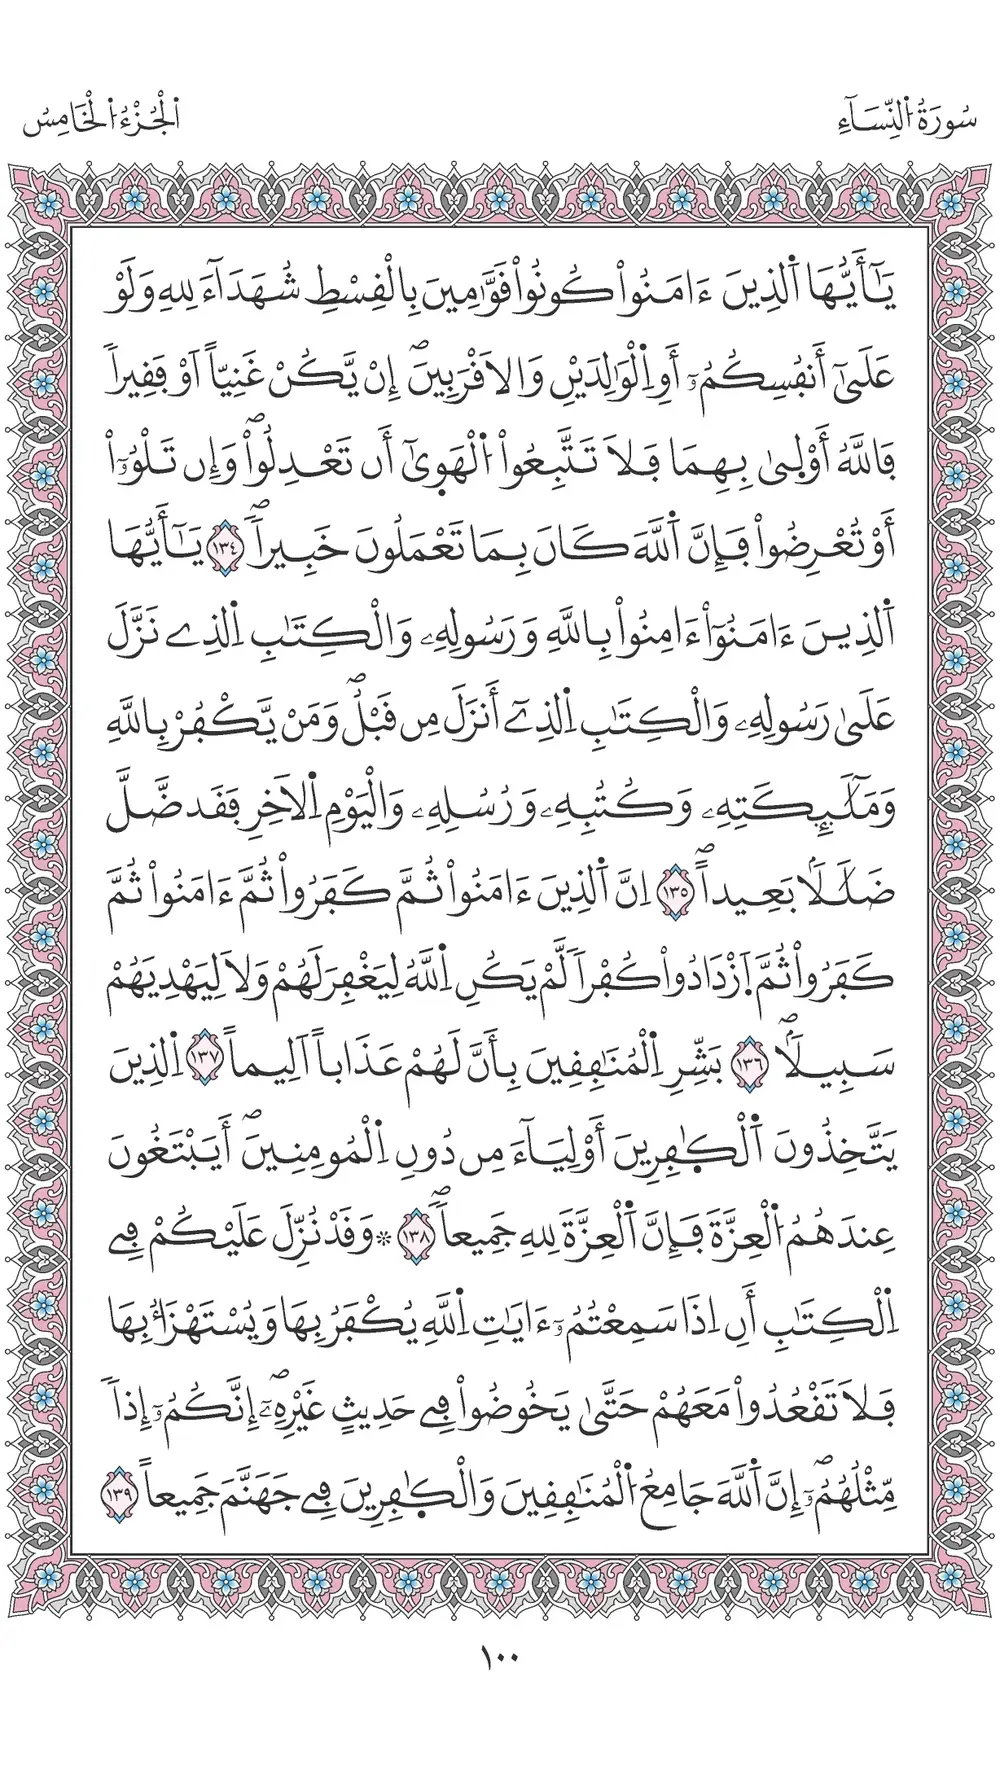 سُورَةُ اُلنِّسَآءِ
اَلْجُزْءُ اُلْخَامِسُ
يَٰٓأَيُّهَا اَلذِينَ ءَامَنُواْ كُونُواْ قَوَّٰمِينَ بِالْقِسْطِ شُهَدَآءَ لِلهِ وَلَوْ
عَلَىٰٓ أَنفُسِكُمُۥٓ أَوِ اِلْوَٰلِدَيْنِ وَالَاقْرَبِينَۖ إِنْ يَّكُنْ غَنِيّاً اَوْ فَقِيراٗ
فَاللَّهُ أَوْلَىٰ بِهِمَا فَلَا تَتَّبِعُواْ اُلْهَوِىٰٓ أَن تَعْدِلُواْۖ وَإِن تَلْوُۥٓاْ
أَوْ تُعْرِضُواْ فَإِنَّ اَللَّهَ كَانَ بِمَا تَعْمَلُونَ خَبِيراٗۖ ١٣٤ يَٰٓأَيُّهَا
اَلذِينَ ءَامَنُوٓاْ ءَامِنُواْ بِاللَّهِ وَرَسُولِهِۦ وَالْكِتَٰبِ اِلذِے نَزَّلَ
عَلَىٰ رَسُولِهِۦ وَالْكِتَٰبِ اِلذِےٓ أَنزَلَ مِن قَبْلُۖ وَمَنْ يَّكْفُرْ بِاللَّهِ
وَمَلَٰٓئِكَتِهِۦ وَكُتُبِهِۦ وَرُسُلِهِۦ وَالْيَوْمِ اِلَاخِرِ فَقَد ضَّلَّ
ضَلَٰلَاۢ بَعِيداًۖ ١٣٥ اِنَّ اَلذِينَ ءَامَنُواْ ثُمَّ كَفَرُواْ ثُمَّ ءَامَنُواْ ثُمَّ
كَفَرُواْ ثُمَّ اَزْدَادُواْ كُفْراٗ لَّمْ يَكُنِ اِللَّهُ لِيَغْفِرَ لَهُمْ وَلَا لِيَهْدِيَهُمْ
سَبِيلاَۢۖ ١٣٦ بَشِّرِ اِلْمُنَٰفِقِينَ بِأَنَّ لَهُمْ عَذَاباً اَلِيماً ١٣٧ اِلذِينَ
يَتَّخِذُونَ اَلْكٰ۪فِرِينَ أَوْلِيَآءَ مِن دُونِ اِلْمُومِنِينَۖ أَيَبْتَغُونَ
عِندَهُمُ اُلْعِزَّةَ فَإِنَّ اَلْعِزَّةَ لِلهِ جَمِيعاٗۖ ١٣٨ * وَقَدْ نُزِّلَ عَلَيْكُمْ فِے
اِلْكِتَٰبِ أَنِ اِذَا سَمِعْتُمُۥٓ ءَايَٰتِ اِللَّهِ يُكْفَرُ بِهَا وَيُسْتَهْزَأُ بِهَا
فَلَا تَقْعُدُواْ مَعَهُمْ حَتَّىٰ يَخُوضُواْ فِے حَدِيثٍ غَيْرِهِۦٓۖ إِنَّكُمُۥٓ إِذاٗ
مِّثْلُهُمُۥٓۖ إِنَّ اَللَّهَ جَامِعُ اُلْمُنَٰفِقِينَ وَالْكٰ۪فِرِينَ فِے جَهَنَّمَ جَمِيعاً ١٣٩
١٠٠